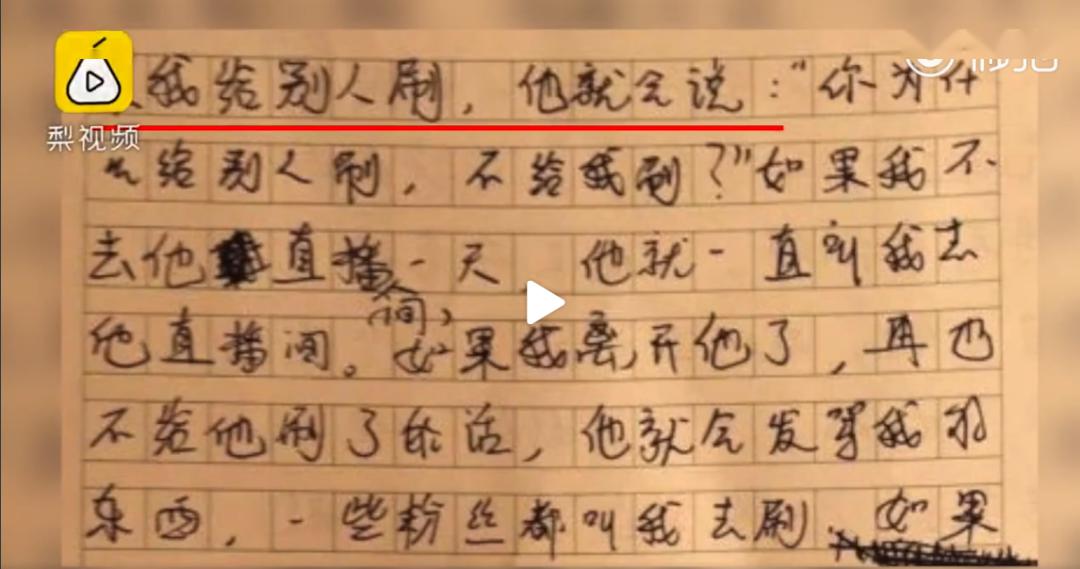 我给别人刷，他就会说：“你为什
么给别人刷，不给我刷？”如果我不
去他直播(间)一天 他就一直叫我去
他直播间。如果我离开他了，再也
不给他刷了的话，他就会发骂我的
东西，一些粉丝都叫我去刷. 如果
梨视频